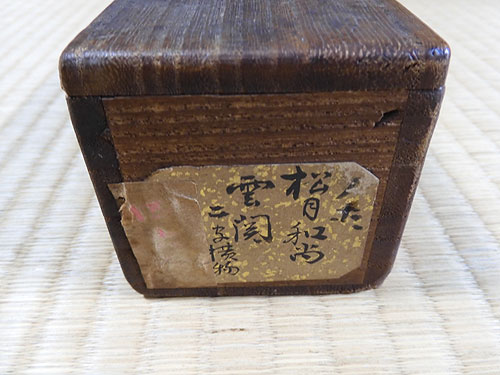 松月和尚
雲関
二字横物